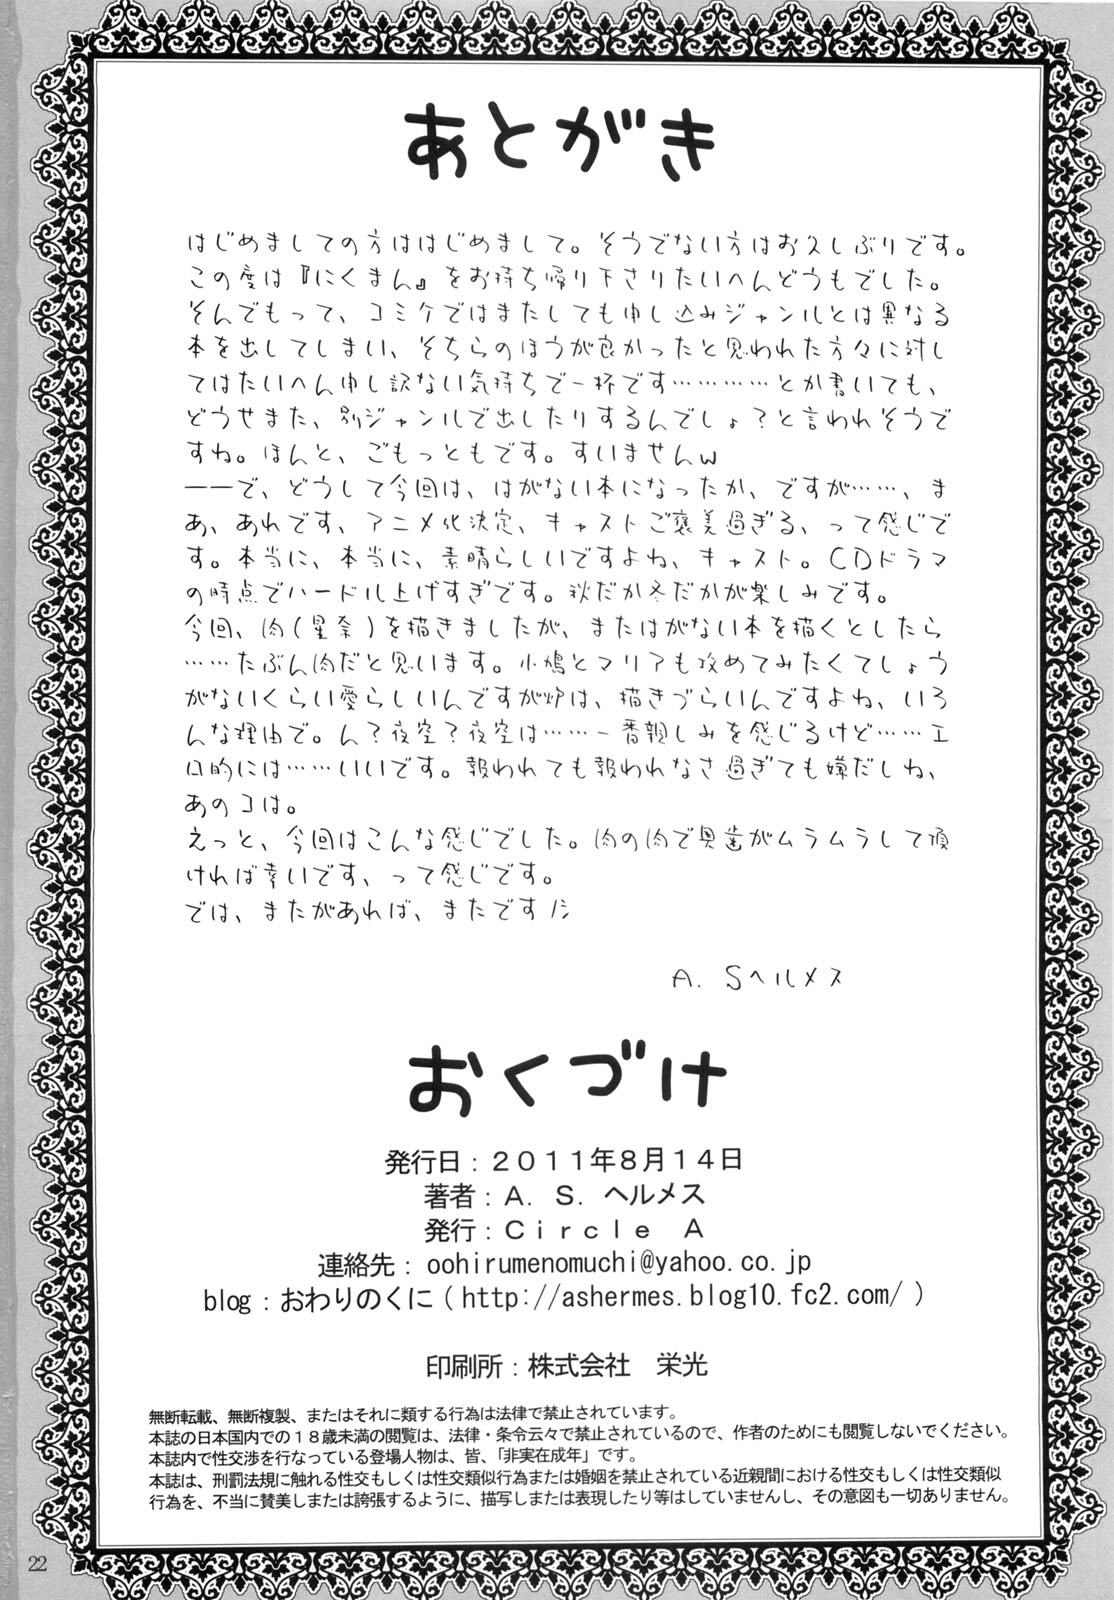 あとがき
はじめましての方ははじめまして。そうでない方はお久しぶりです。
この度は『にくまん』をお持ち帰り下さりたいへんどうもでした。
そんでもって、コミケではまたしても申し込みジャンルとは異なる
本を出してしまい、そちらのほうが良かったと思われた方々に対し
てはたいへん申し訳ない気持ちで一杯です…………とか書いても、
どうせまた、別ジャンルで出したりするんでしょ？と言われそうで
すね。ほんと、ごもっともです。すいませんｗ
――で、どうして今回は、はがない本になったか、ですが……、ま
あ、あれです、アニメ化決定、キャストご褒美過ぎる、って感じで
す。本当に、本当に、素晴らしいですよね、キャスト。ＣＤドラマ
の時点でハードル上げすぎです。秋だか冬だかが楽しみです。
今回、肉（星奈）を描きましたが、またはがない本を描くとしたら
……たぶん肉だと思います。小鳩とマリアも攻めてみたくてしょう
がないくらい愛らしいんですが炉は、描きづらいんですよね、いろ
んな理由で。ん？夜空？夜空は……一番親しみを感じるけど……エ
ロ的には……いいです。報われても報われなさ過ぎても嫌だしね、
あのコは。
えっと、今回はこんな感じでした。肉の肉で奥歯がムラムラして頂
ければ幸いです、って感じです。
では、またがあれば、またです ﾉｼ
Ａ．Ｓヘルメス
おくづけ
発行日：２０１１年８月１４日
著者：Ａ．Ｓ．ヘルメス
発行：Ｃｉｒｃｌｅ　Ａ
連絡先： oohirumenomuchi@yahoo.co.jp
blog：おわりのくに（http://ashermes.blog10.fc2.com/）
印刷所：株式会社　栄光
無断転載、無断複製、またはそれに類する行為は法律で禁止されています。
本誌の日本国内での１８歳未満の閲覧は、法律・条令云々で禁止されているので、作者のためにも閲覧しないでください。
本誌内で性交渉を行なっている登場人物は、皆、「非実在成年」です。
本誌は、刑罰法規に触れる性交もしくは性交類似行為または婚姻を禁止されている近親間における性交もしくは性交類似
行為を、不当に賛美しまたは誇張するように、描写しまたは表現したり等はしていませんし、その意図も一切ありません。
22